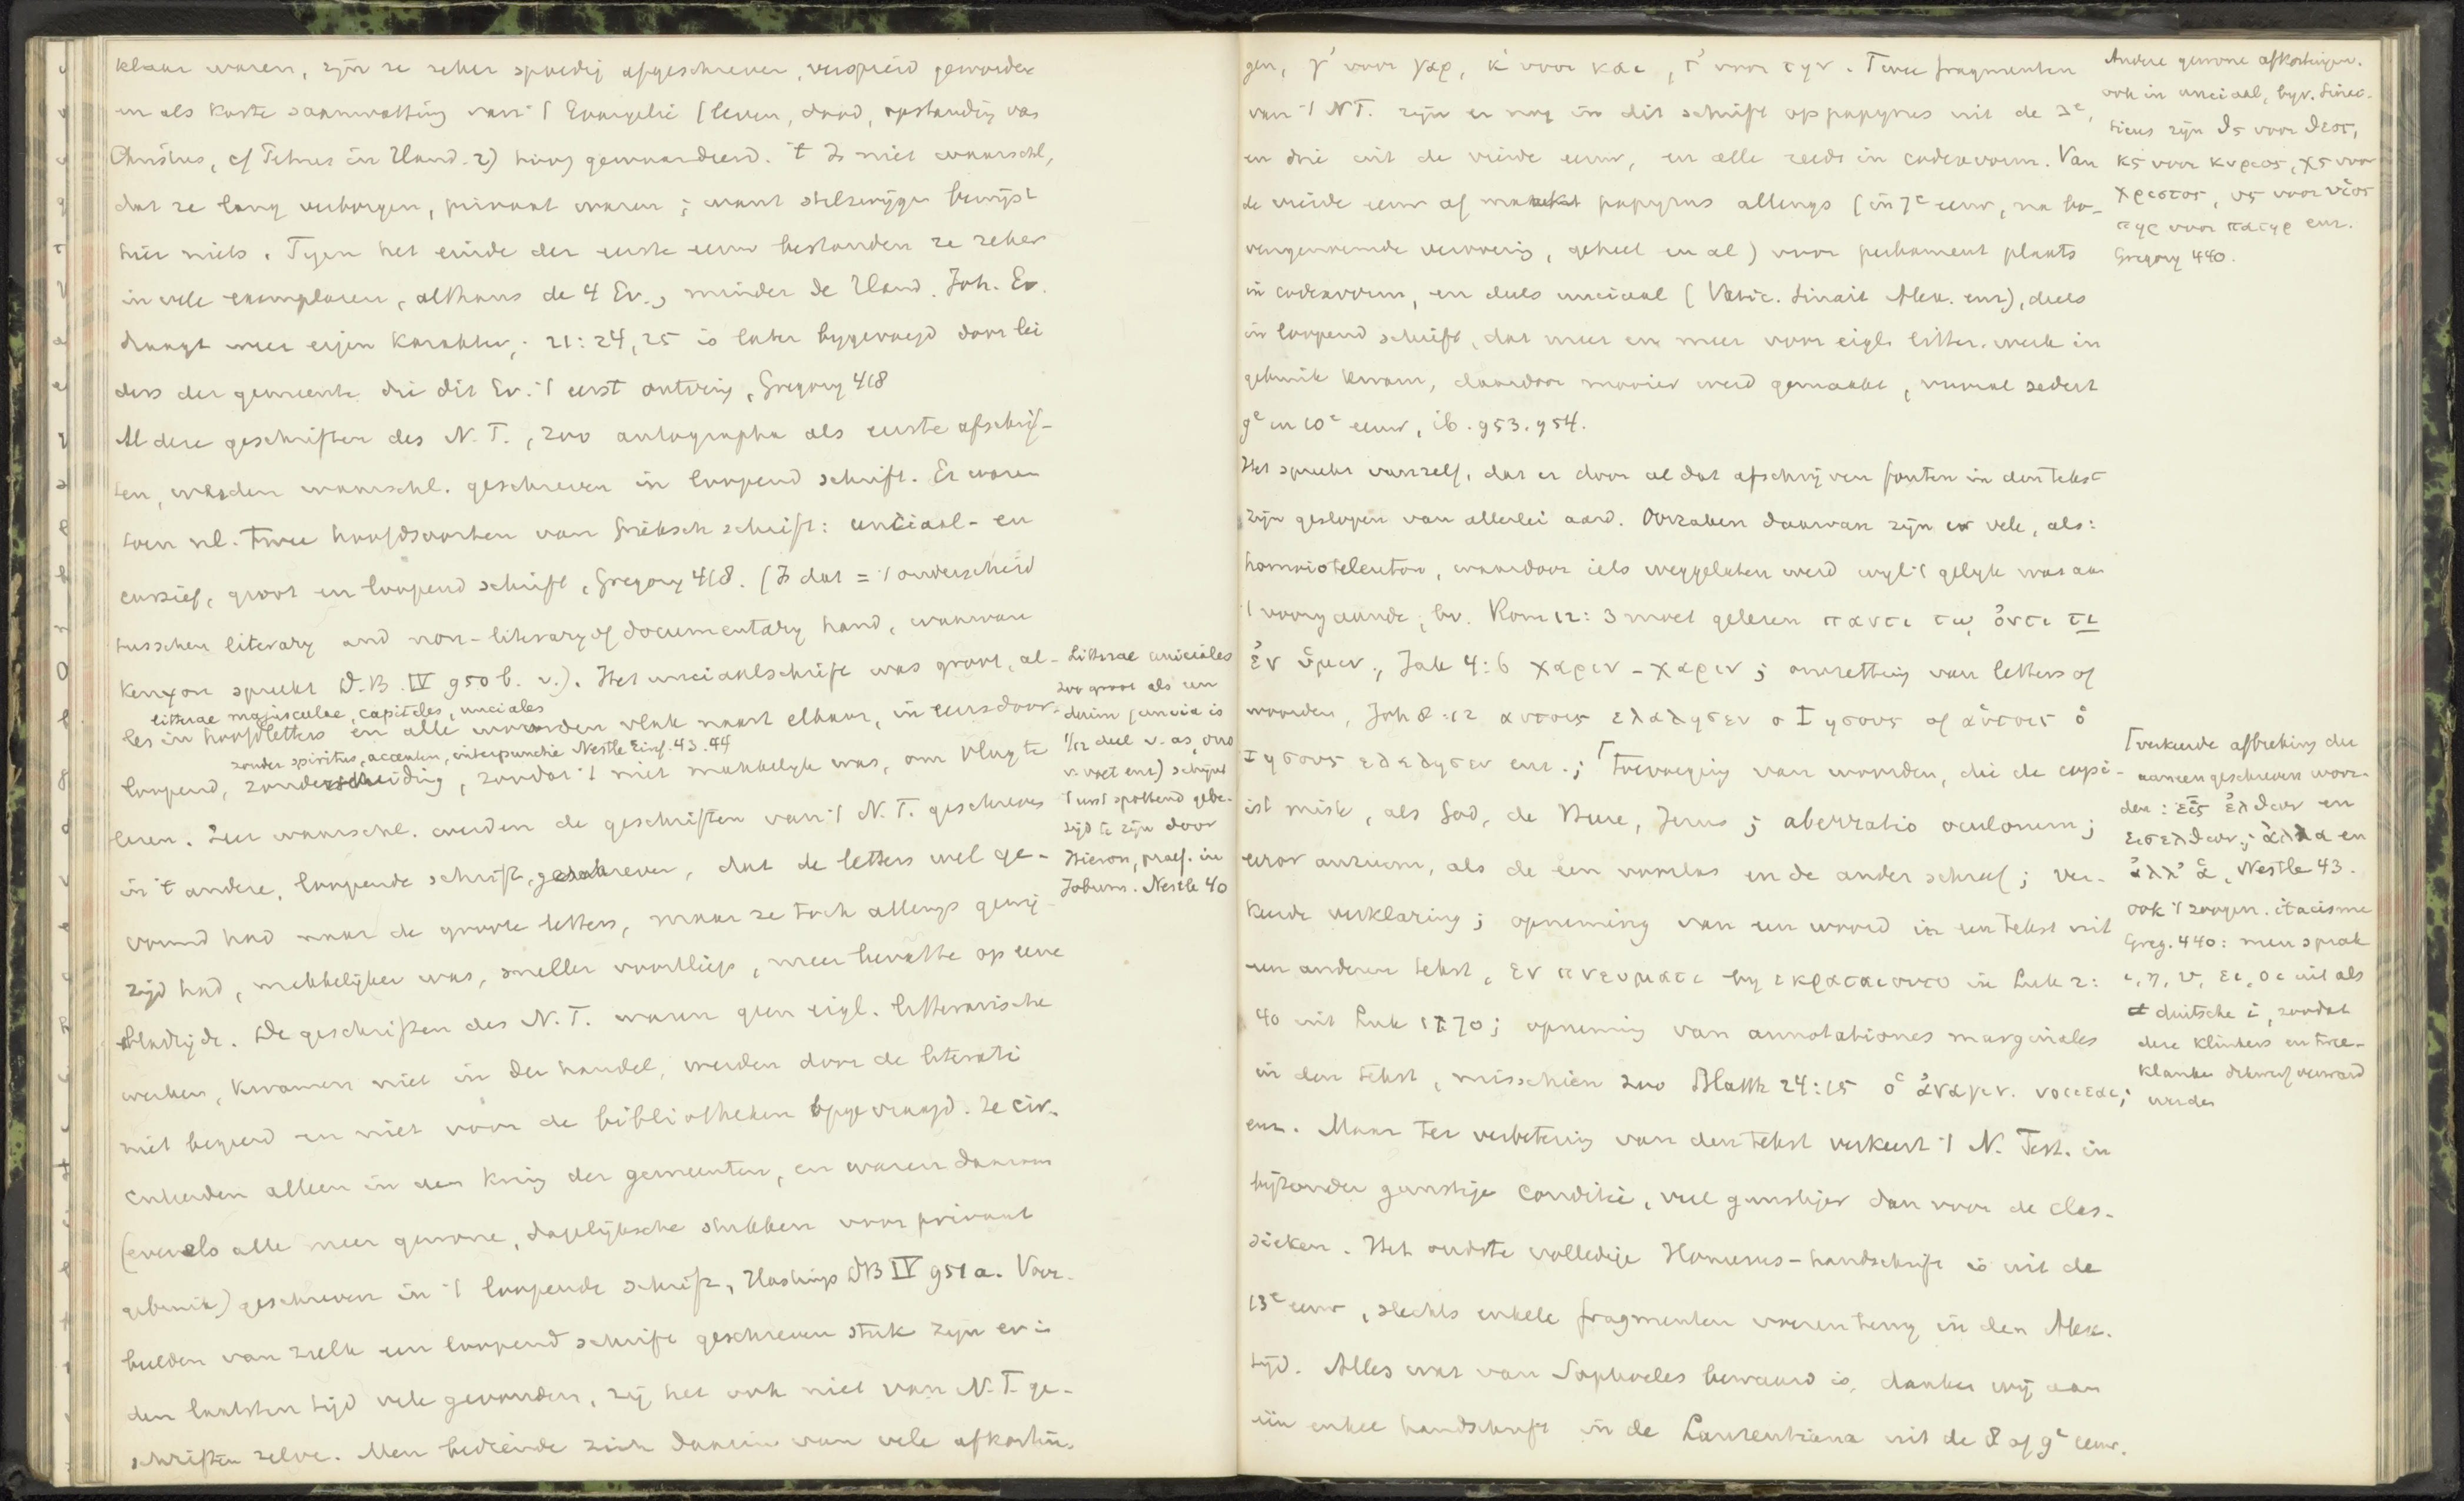 klaar waren, zijn ze zeker spoedig afgeschreven, verspreid geworden
en als korte saamvatting van 't Evangelie (leven, dood, opstanding van
Christus, cf Petrus in Hand. 2) hoog gewaardeerd. 't Is niet waarschl,
dat ze lang verborgen, privaat waren; want stilzwijgen bewijst
hier niets. Tegen het einde der eerste eeuw bestonden ze zeker
in vele exemplaren, althans de 4 Ev., minder de Hand. Joh. Ev.
draagt meer eigen karakter; 21:24, 25 is later bygevoegd door lei
ders der gemeente die dit Ev. 't eerst ontving, Gregory 418
Al deze geschriften des N. T., zoo autographa als eerste afschrif-
ten, werden waarschl. geschreven in loopend schrift. Er waren
toen nl. twee hoofdsoorten van Grieksch schrift: unciaal- en
cursief, groot en loopend schrift, Gregory 418. (Is dat = 't onderscheid
tusschen literary and non-literary of documentary hand, waarvan
Kenyon spreekt D.B. IV 950 b. v.). Het unciaalschrift was groot, al-
litterae majusculae, capitales, unciales
les in hoofdletters en alle woorden vlak naast elkaar, in eens door-
zonder spiritus, accenten, interpunctie Nestle Einf. 43.44
loopend, zonder scheiding, zoodat 't niet makkelyk was, om vlug te
lezen. Zeer waarschl. werden de geschriften van 't N. T. geschreven
in 't andere, loopende schrift, geschreven, dat de letters wel ge-
vormd had naar de groote letters, maar ze toch allengs gewij-
zigd had, makkelijker was, sneller voortliep, meer bevatte op eene
bladzijde. De geschriften des N. T. waren geen eigl. litterarische
werken, kwamen niet in den handel, werden door de literati
niet begeerd en niet voor de bibliotheken opgevraagd. Ze cir-
culeerden alleen in den kring der gemeenten, en waren daarom
(evenals alle meer gewone, dagelijksche stukken voor privaat
gebruik) geschreven in 't loopende schrift, Hastings DB IV 951 a. Voor-
beelden van zulk een loopend schrift geschreven stuk zijn er in
den laatsten tijd vele gevonden, zij het ook niet van N. T. ge-
schriften zelve. Men bediende zich daarin van vele afkortin-
Litterae unciales
zoo groot als een
duim (uncia is
1/12 deel v. as, ons
v. voet enz) schijnt
't eerst spottend gebe-
zigd te zijn door
Hieron, praef. in
Jobum. Nestle 40
gen, γ' voor γαρ, κ' voor και, τ' voor την. Twee fragmenten
van 't N T. zijn er nog in dit schrift op papyrus uit de 3e,
en drie uit de vierde eeuw, en alle reeds in codexvorm. Van
de vierde eeuw af maakt papyrus allengs (in 7e eeuw, na bo-
vengenoemde verovering, geheel en al) voor perkament plaats
in codexvorm, en deels unciaal (Vatic. Sinait Alex. enz), deels
in loopend schrift, dat meer en meer voor eigl. litter. werk in
gebruik kwam, daardoor mooier werd gemaakt, vooral sedert
9e en 10e eeuw, ib. 953. 954.
Het spreekt vanzelf, dat er door al dat afschrijven fouten in den tekst
zijn geslopen van allerlei aard. Oorzaken daarvan zijn er vele, als:
homoioteleuton, waardoor iets weggelaten werd wyl 't gelyk was aan
't voorgaande, bv. Rom 12:3 moet gelezen παντι τῳ ὀντι τι
ἐν ὑμιν, Jak 4:6 χαριν - χαριν; omzetting van letters of
woorden, Joh 8:12 αυτοις ελαλησεν ο Ιησους of αὐτοις ὁ
Ιησους ελαλησεν enz.; ⌈ toevoeging van woorden, die de copi-
ist miste, als God, de Heere, Jezus; aberratio oculorum;
error aurium, als de een voorlas en de ander schreef; ver-
keerde verklaring; opneming van een woord in een tekst uit
een anderen tekst, εν πνευματι by εκραταιουτο in Luk 2:
40 uit Luk 1:70; opneming van annotationes marginales
in den tekst, misschien zoo Matth 24:15 ὁ ἀναγιν. νοειται;
enz. Maar ter verbetering van den tekst verkeert 't N. Test. in
bijzonder gunstige conditie, veel gunstiger dan voor de clas-
sieken. Het oudste volledige Homerus-handschrift is uit de
13e eeuw, slechts enkele fragmenten voeren terug in den Alex.
tijd. Alles wat van Sophocles bewaard is, danken wij aan
één enkel handschrift in de Laurentiana uit de 8 of 9e eeuw.
Andere gewone afkortingen.
ook in unciaal, byv. Sinai-
ticus zijn θς voor θεος,
κς voor κυριος, χς voor
χριστος, υς voor υἱος
πηρ voor πατηρ enz.
Gregory 440.
⌈ verkeerde afbreking der
aaneengeschreven woor-
den: εἰς ἐλθων en
εισελθων; ἀλλα en
ἀλλ' ἁ, Nestle 43.
ook 't zoogen. itacisme
Greg. 440: men sprak
ι, η, υ, ει, οι uit als
duitsche i, zoodat
deze klinkers en twee-
klanken dikwerf verward
werden